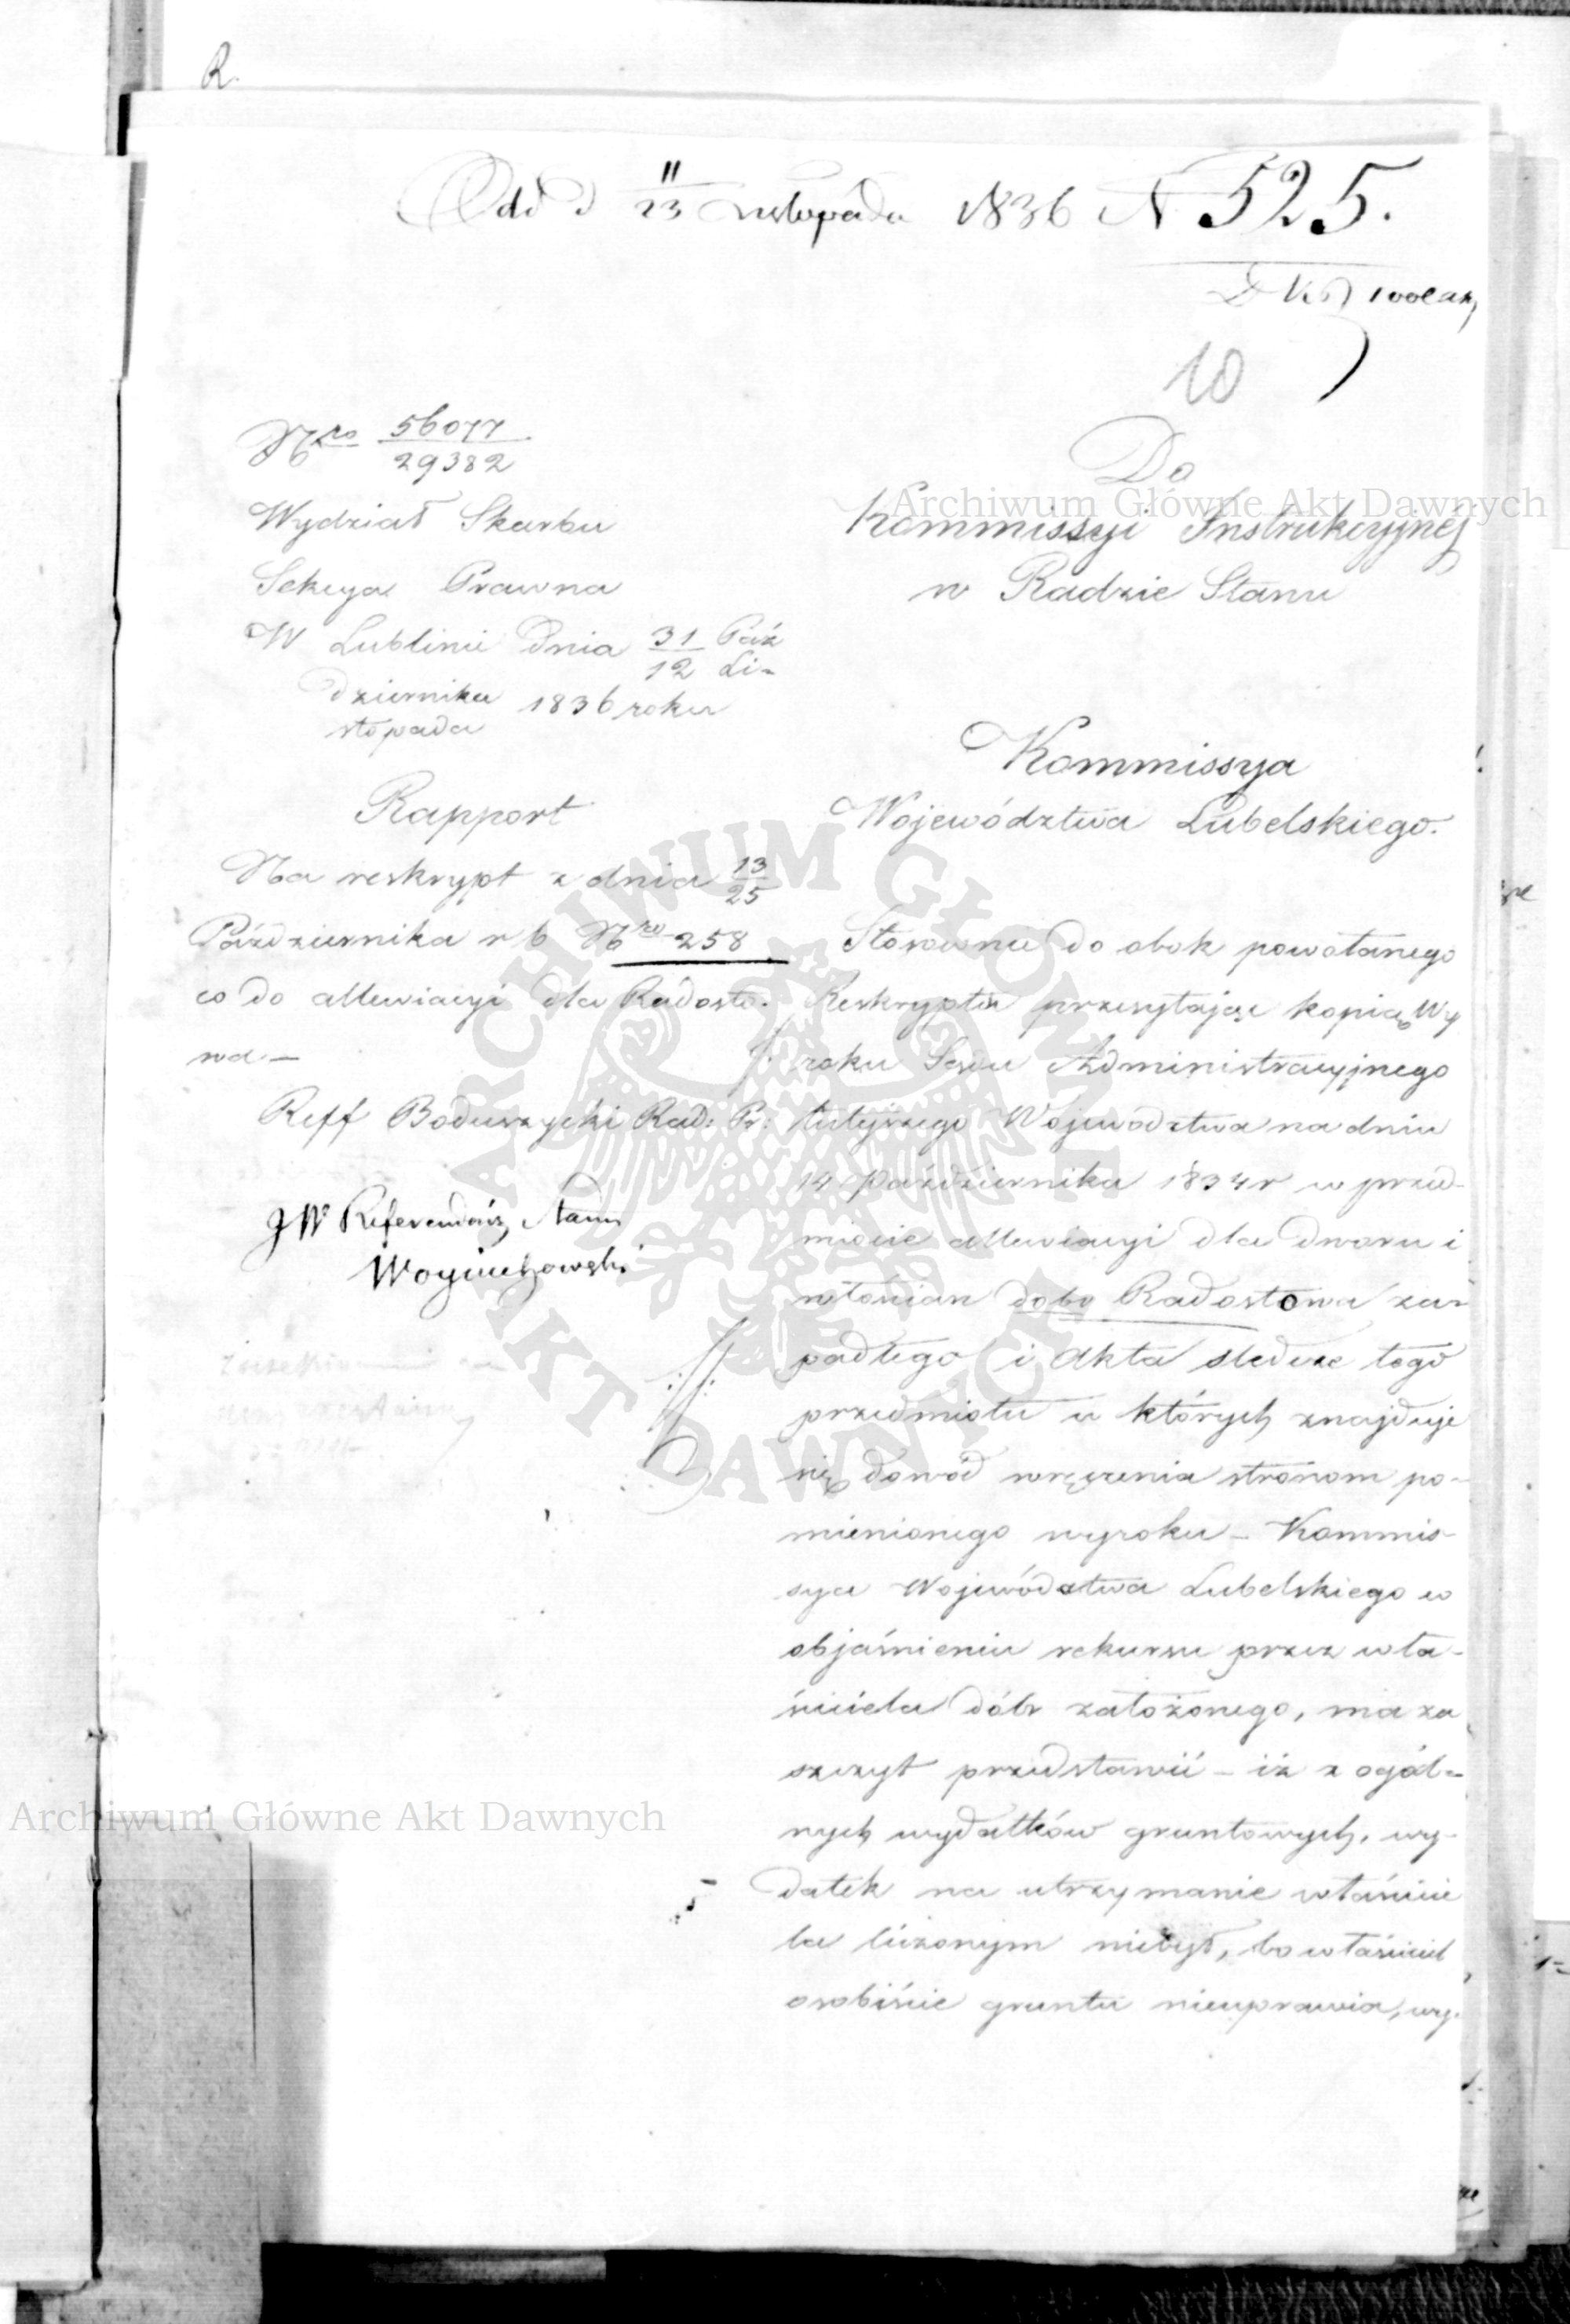 R.
Odd d 11/23 Listopada 1836 N 525.
10
Nro 56077/29382
Wydział Skarbu
Sekcya Prawna
W Lublinie Dnia 31/12 Paź
Li-
dziernika 1836 roku
stopada
Rapport
Na reskrypt z dnia 13/25
Października r b Nro 258
co do allewiacyi dla Radosto-
wa —
Reff Boduszycki Rad: Pr:
JW Referendarz Stanu
Woyciechowski
Do
Kommissyi Instrukcyjnej
w Radzie Stanu
Kommissya
Województwa Lubelskiego.
Stosownie do obok powołanego
Reskryptu przesyłając kopią Wy
roku Sądu Administracyjnego
tutejszego Województwa na dniu
14 Października 1834 r w przed-
miocie allewiacyi dla dworu i
włościan dóbr Radostowa za-
padłego i Akta śledcze tego
przedmiotu w których znajduje
się dowód wręczenia stronom po-
mienionego wyroku – Kommis-
sya Województwa Lubelskiego w
objaśnieniu rekursu przez wła-
ściciela dóbr założonego, ma za
szczyt przedstawić – iż z ogól-
nych wydatków gruntowych, wy-
datek na utrzymanie właścicie
la liczonym niebył, bo właściciel
osobiście gruntu nieuprawia, wy-
Archiwum Główne Akt Dawnych
Archiwum Główne Akt Dawnych
ARCHIWUM GŁÓWNE AKT DAWNYCH